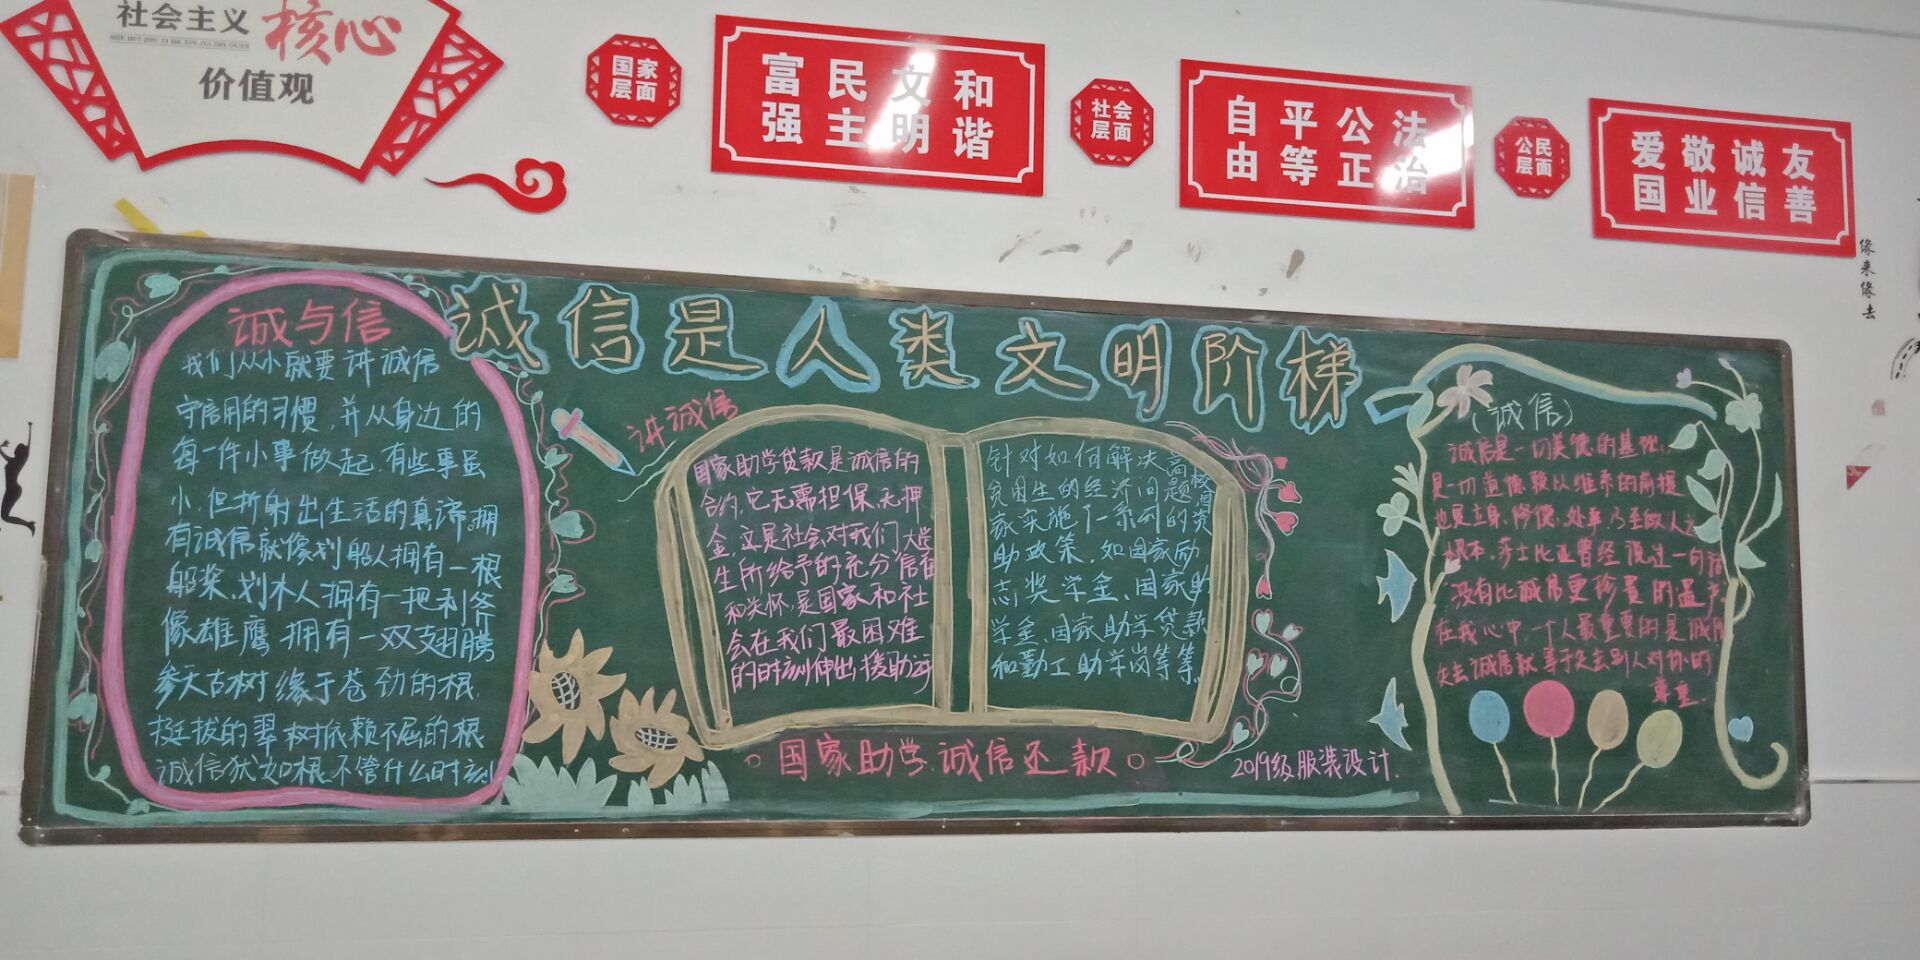 社会主义核心
SHE HUI ZHU YI HE XIN JIA ZHI GUAN
价值观
国家
层面
富民文和
强主明谐
社会
层面
自平公法
由等正治
公民
层面
爱敬诚友
国业信善
像来像去
诚信是人类文明阶梯
诚与信
我们从小就要讲诚信
守信用的习惯,并从身边的
每一件小事做起.有些事虽
小,但折射出生活的真谛.拥
有诚信就像划船人拥有一根
船桨.划木人拥有一把利斧
像雄鹰拥有一双翅腾
参天古树缘于苍劲的根.
挺拔的翠树依赖不屈的根
诚信犹如根.不管什么时刻
讲诚信
国家助学贷款是诚信的
合约,它无需担保、无押
金,这是社会对我们大学
生所给予的充分信任
和关怀,是国家和社
会在我们最困难
的时刻伸出援助之手
针对如何解决高校
贫困生的经济问题国
家实施了一系列的资
助政策,如国家励
志奖学金、国家助
学金、国家助学贷款
和勤工助学岗等等.
国家助学.诚信还款
2019级服装设计.
(诚信)
诚信是一切美德的基础,
是一切道德赖以维系的前提
也是立身、修德、处事,乃至做人之
根本.莎士比亚曾经说过一句话
没有比诚信更珍贵的遗产
在我心中,一个人最重要的是诚信
失去诚信就等于失去别人对你的
尊重.